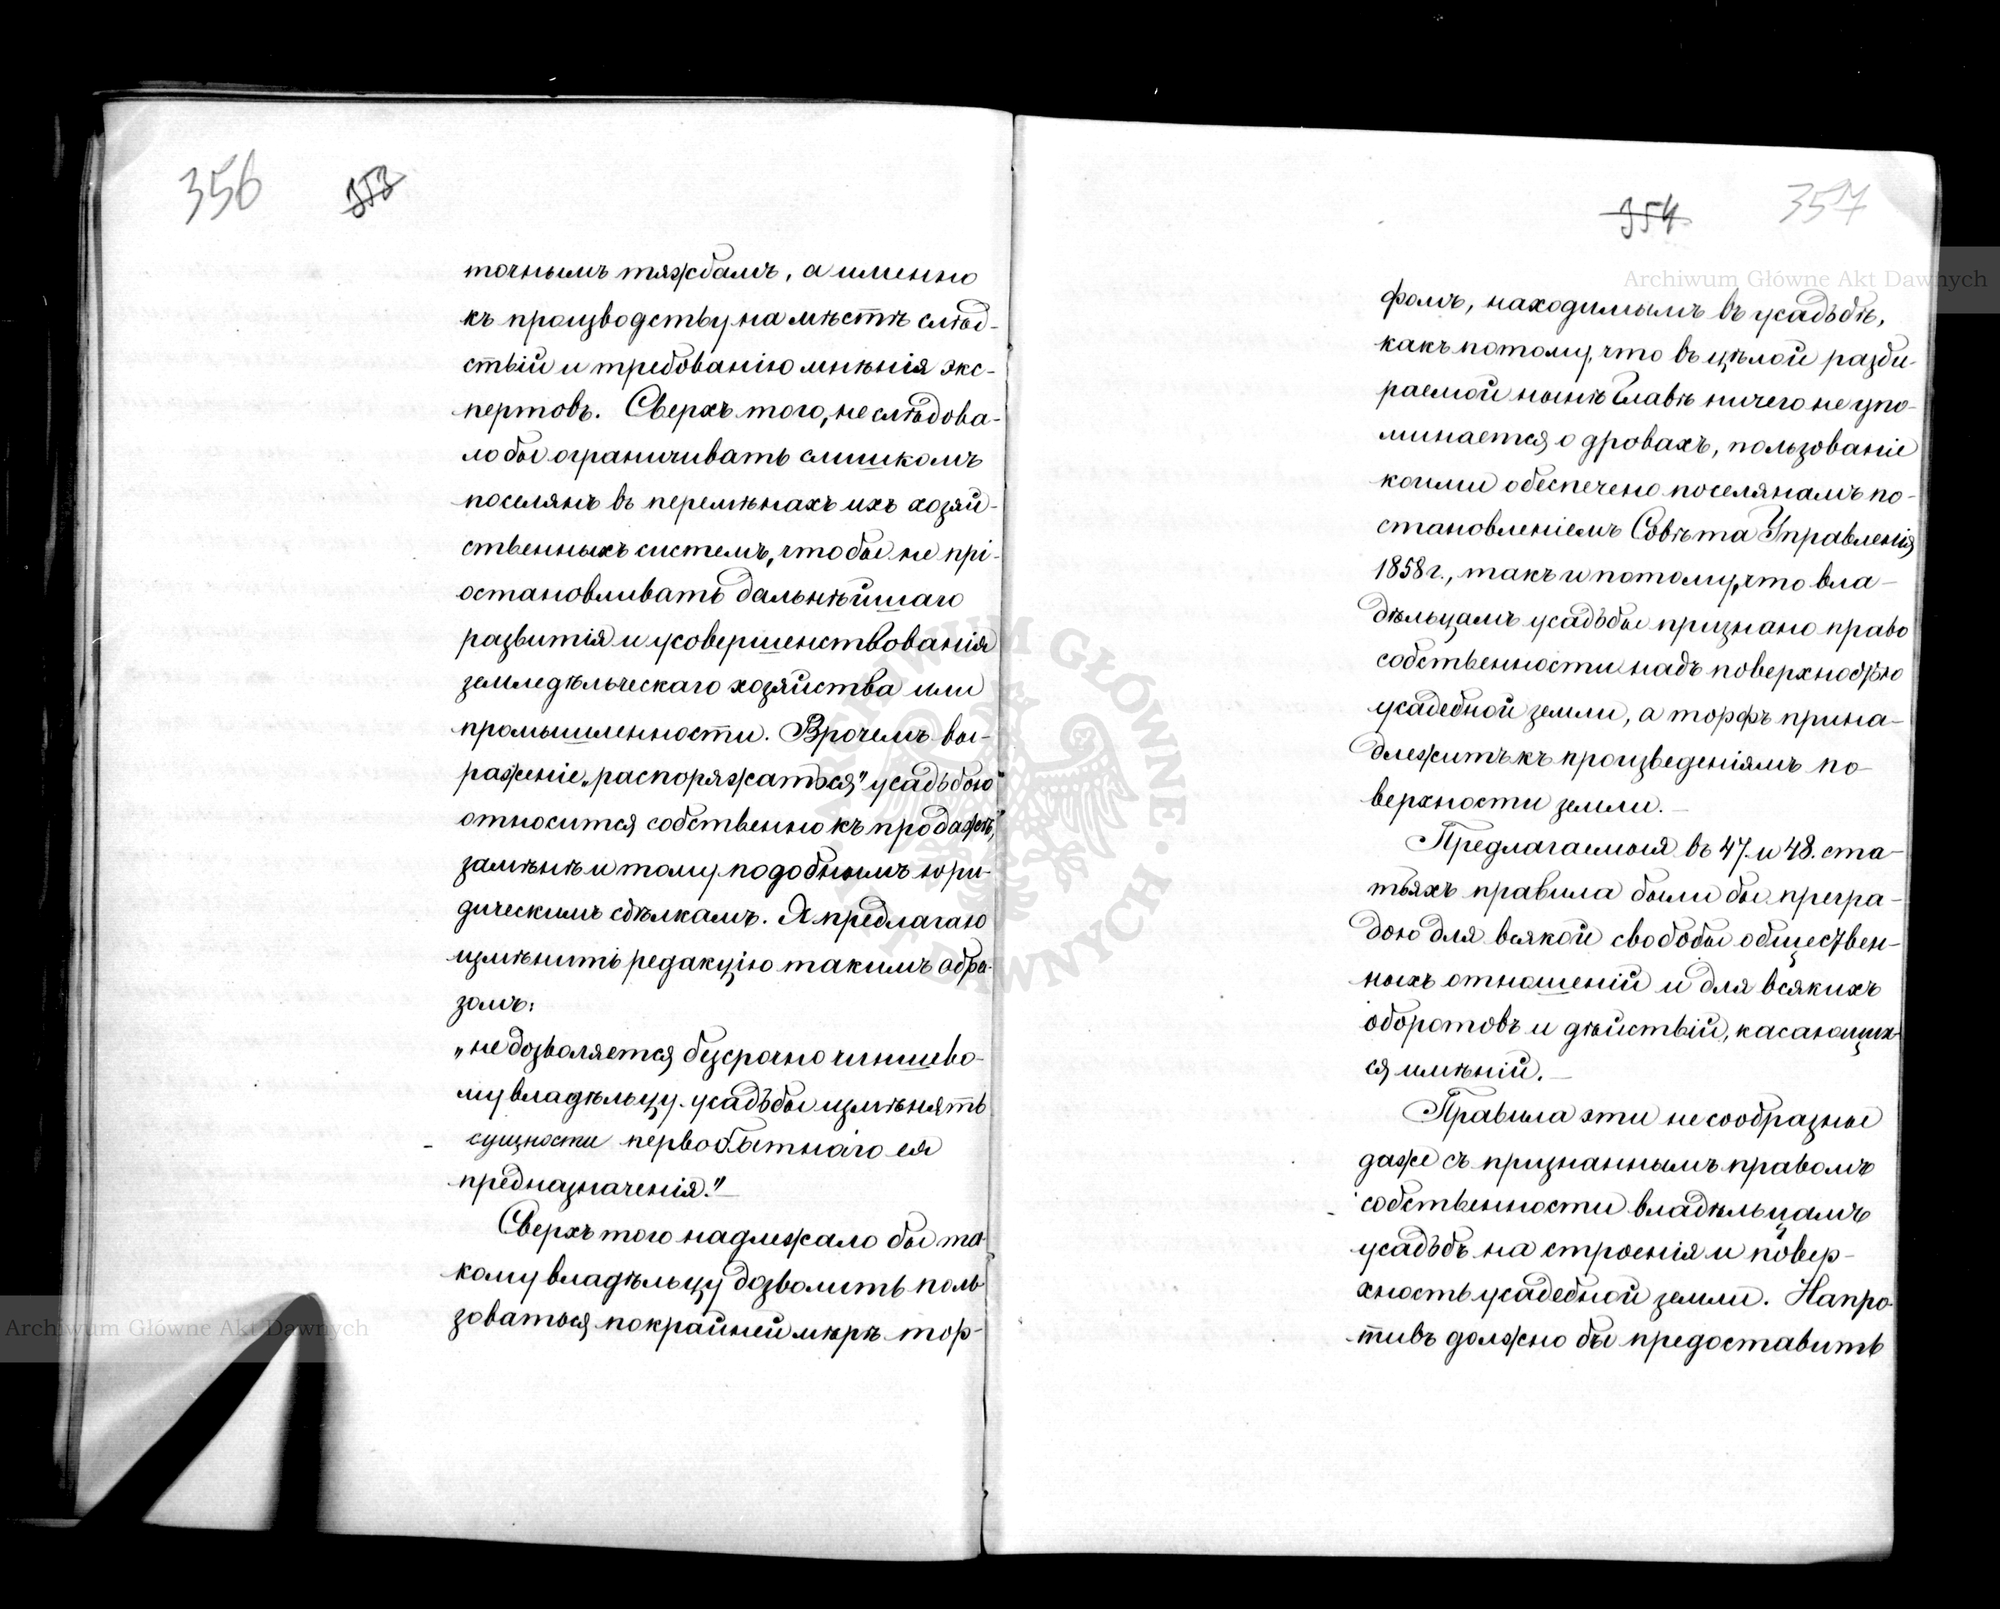 356 353
точнымъ тяжбамъ, а именно
къ производству на мѣстѣ слѣд-
ствій и требованію мнѣнія экс-
пертовъ. Сверхъ того, не слѣдова-
ло бы ограничивать слишкомъ
поселянъ въ перемѣнахъ ихъ хозяй-
ственныхъ системъ, чтобы не прі-
остановливать дальнѣйшаго
развитія и усовершенствованія
земледѣльческаго хозяйства или
промышленности. Врочемъ вы-
раженіе „распоряжаться" усадьбою"
относится собственно къ продажѣ,
замѣнѣ и тому подобнымъ юри-
дическимъ сдѣлкамъ. Я предлагаю
измѣнить редакцію такимъ обра-
зомъ:
„не дозволяется безсрочно чиншево-
му владѣльцу усадьбы измѣнять
сущности первобытнаго ея
предназначенія."—
Сверхъ того надлежало бы та-
кому владѣльцу дозволить поль-
зоваться покрайней мѣрѣ тор-
354 357
фомъ, находимымъ въ усадьбѣ,
какъ потому, что въ цѣлой разби-
раемой нынѣ Главѣ ничего не упо-
минается о дровахъ, пользованіе
коими обеспечено поселянамъ по-
становленіемъ Совѣта Управленія
1858 г., такъ и потому, что вла-
дѣльцамъ усадьбы признано право
собственности надъ поверхностью
усадебной земли, а торфъ прина-
длежитъ къ произведеніямъ по-
верхности земли.—
Предлагаемыя въ 47. и 48. ста-
тьяхъ правила были бы прегра-
дою для всякой свободы обществен-
ныхъ отношеній и для всякихъ
оборотовъ и дѣйствій, касающих-
ся имѣній.—
Правила эти не сообразны
даже съ признаннымъ правомъ
собственности владѣльцамъ
усадьбъ на строенія и повер-
хность усадебной земли. Напро-
тивъ должно бы предоставить
Archiwum Główne Akt Dawnych
Archiwum Główne Akt Dawnych
ARCHIWUM GŁÓWNE AKT DAWNYCH